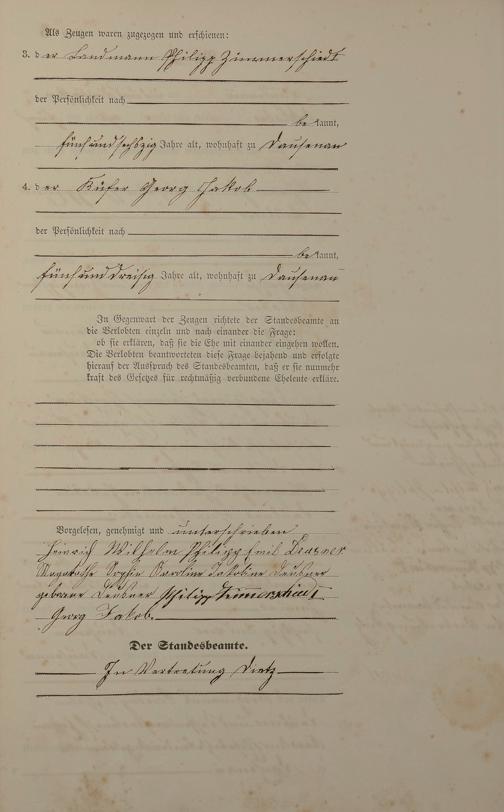 Als Zeugen waren zugezogen und erschienen:
3. der Landmann Philipp Zimmerschiedt
der Persönlichkeit nach
bekannt,
fünfundsechszig Jahre alt, wohnhaft zu Dausenau
4. der Küfer Georg Jakob
der Persönlichkeit nach
bekannt,
fünfunddreisig Jahre alt, wohnhaft zu Dausenau
In Gegenwart der Zeugen richtete der Standesbeamte an
die Verlobten einzeln und nach einander die Frage:
ob sie erklären, daß sie die Ehe mit einander eingehen wollen.
Die Verlobten beantworteten diese Frage bejahend und erfolgte
hierauf der Ausspruch des Standesbeamten, daß er sie nunmehr
kraft des Gesetzes für rechtmäßig verbundene Eheleute erkläre.
Vorgelesen, genehmigt und unterschrieben
Heinrich Wilhelm Philipp Emil
Sophie Karoline Jakobine
geborene Philipp Zimmerschiedt
Georg Jakob
Der Standesbeamte.
In Vertretung Dietz